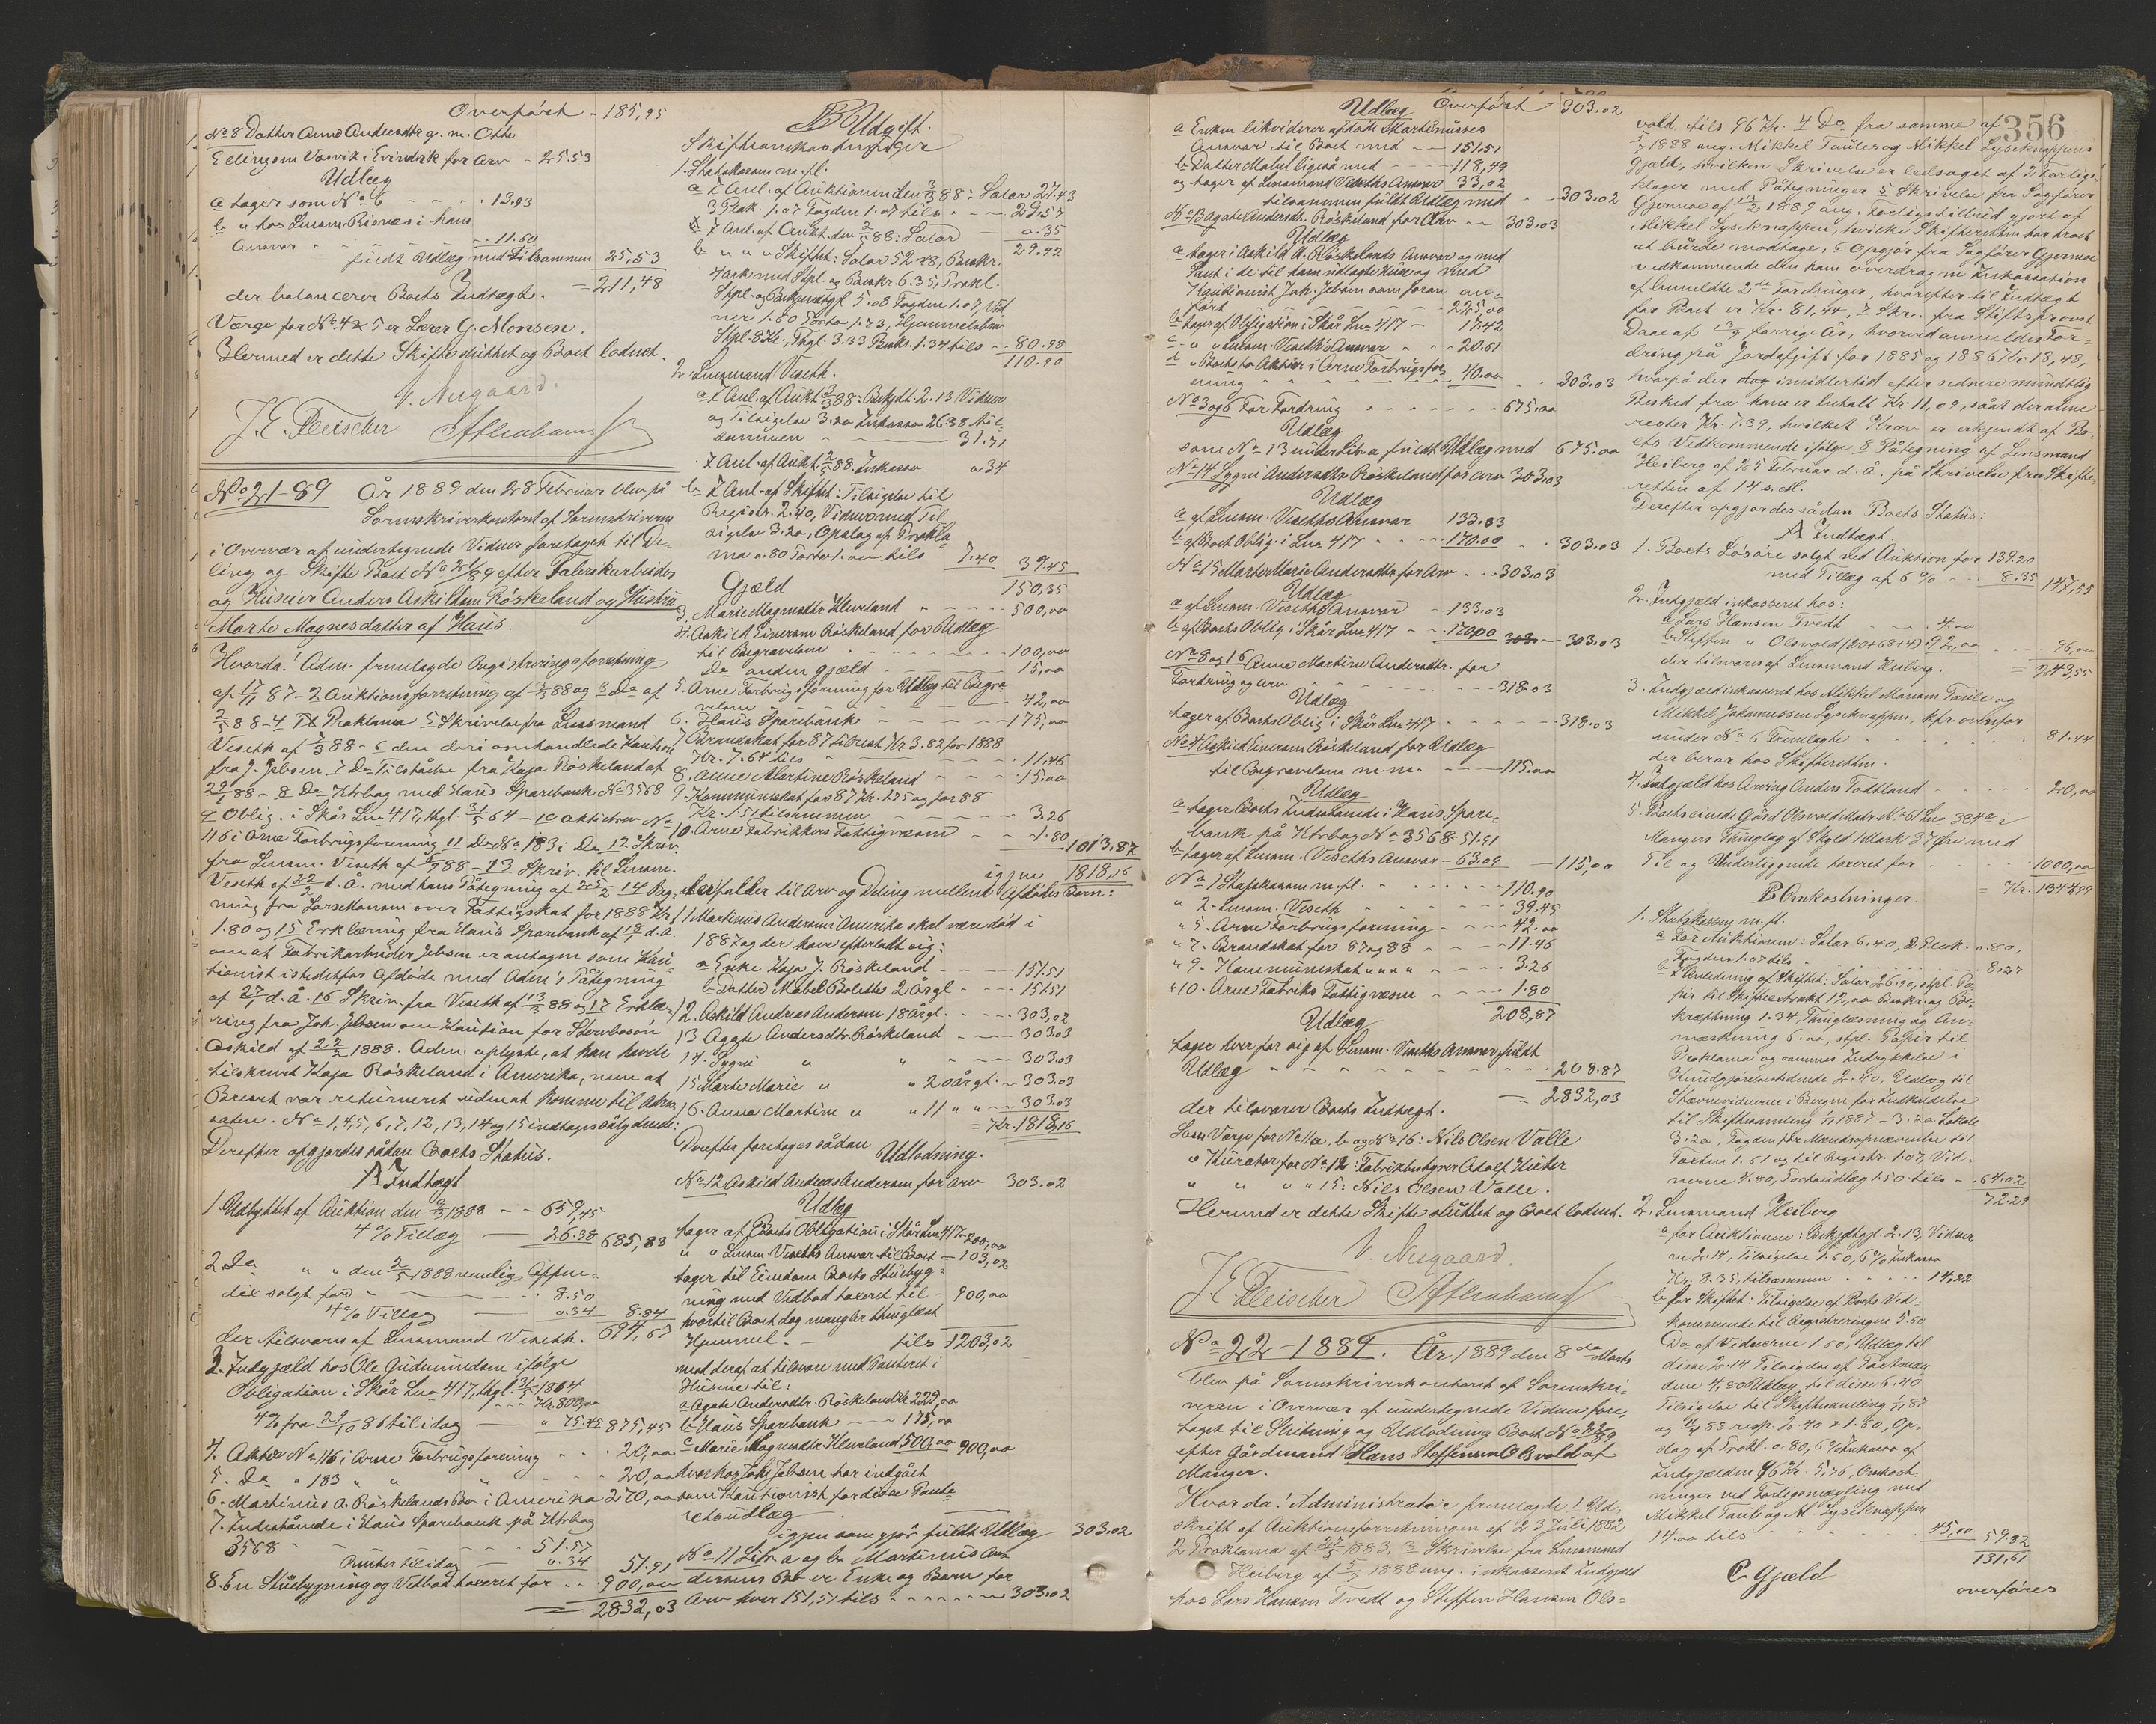 Overført - 185,95
No 8 Datter Anna Andersdtr g. m. Otte
Ellingsen Vasvik i Evindvik for Arv - 25.53
Udlæg
a tager som No 6 - - - 13.93
b " hos Lensm. Risnæs i hans
Ansvar " - - 11.60
fuldt Udlæg med tilsammen 25,53
der balancerer Boets Indtægt. = 211,48
Værge for No 4 & 5 er Lærer G. Monsen.
Hermed er dette Skifte sluttet og Boet lodnet.
V. Neergaard.
J. E. Fleischer Abrahams
No 21-89 År 1889 den 28 Februar blev på
Sorenskriverkontoret af Sorenskriveren
i Overvær af undertegnede Vidner foretaget til De-
ling og Skifte Boet No 21/89 efter Fabrikarbeider
og Huseier Anders Askildsen Röskeland og Hustru
Marte Magnesdatter af Haus.
Hvorda! Adm. fremlagde 1 Registreringsforretning
af 17/11 87 - 2 Auktionsforretning af 3/3 88 og 3 Do af
2/5 88 - 4 Proklama 5 Skrivelse fra Lensmand
Viseth af 7/3 88 - 6 den deri omhandlede Kaution
fra J. Jebsen 7 Do Tilståelse fra Kaja Röskeland af
29/1 88 - 8 Do Ktrbog med Haus Sparebank No 3568
9 Oblig. i Skår Lno 417, thgl. 31/5 64 - 10 Aktiebrev No
116 i Arne Forbrugsforening 11 Do No 183 i Do 12 Skriv.
fra Lensm. Viseth af 6/9 88 - 13 Skriv. til Lensm.
Viseth af 22/2 d. Å. med hans Påtegning af 25/2 14 Reg-
ning fra Lars Hansen over Fattigskat for 1888 Kr.
1.80 og 15 Erklæring fra Haus Sparebank af 18/1 d. Å
om at Fabrikarbeider Jebsen er antagen som Kau-
tionist istedetfor Afdøde med Adm's Påtegning
af 27/1 d. Å. 16 Skriv. fra Viseth af 13/3 88 og 17 Erklæ-
ring fra Joh. Jebsen om Kaution for Stervbosön
Askild af 22/2 1888. Adm. oplyste, at han havde
tilskrevet Kaja Röskeland i Amerika, men at
Brevet var returneret uden at komme til Adres-
saten. No 1, 4, 5, 6, 7, 12, 13, 14 og 15 indtages sålydende:
Derefter opgjordes sådan Boets Status.
A Indtægt
1. Udbyttet af Auktion den 3/3 1888 - - 659,45
4% Tillæg - 26.38 685,83
2. Do " " den 2/5 1888 nemlig Affæn-
dix solgt for - - 8.50
4% Tillæg - 0.34 - 8.84
der tilsvares af Lensmand Viseth. 694,67
3. Indgjæld hos Ole Gudmundsen ifölge
Obligation i Skår Lno 417, thgl. 31/5 1864
- - Kr. 800,00
4% fra 29/10 86 til idag - " 75.45 875,45
4. Aktie No 116 i Arne Forbrugsforening - - 20,00
5. Do " 183 " " " - - 20,00
6. Martinus A. Röskelands Bo i Amerika 270,00
7. Indestående i Haus Sparebank på Ktrbog
3568 - - 51.57
Renter til idag - 0.34 51.91
8. En Stuebygning og Vedbod taxeret for - - 900,00
= 2832,03
B Udgift.
Skifteomkostninger
1. Statskassen m. fl.
a I Anl. af Auktionen den 3/3 88: Salar 27.43
3 Plak. 1.07 Fogden 1.07 tils - - 29.57
I Anl. af Aukt. den 2/5 88: Salar - 0.35
29.92
b " " " Skiftet: Salar 52.48, Beskr.
Mark med Stpl. og Beskr. 6.35, Prokl.
Stpl. og Bekjendtgj. 5.08 Fogden 1.07, Vid-
ner 1.60 Porto 1.73, Hjemmelsbrev
Stpl. 8 Kr., Thgl. 3.33 Beskr. 1.34 tils - - 80.98
110.90
2. Lensmand Viseth.
a I Anl. af Aukt. 3/3 88: Bekjdt. 2.13 Vidner
og Tilsigelse 3.20 Inkasso 26.38 til-
sammen - - 31.71
I Anl. af Aukt. 2/5 88. Inkasso 0.34
b I Anl. af Skiftet: Tilsigelse til
Registr. 2.40, Vidner med Til-
sigelse 3.20, Opslag af Prokla-
ma 0.80 Porto 1.00 tils 7.40 39.45
150,35
Gjæld
3. Marie Magnesdtr Kleveland - - 500,00
4. Askild Einersen Röskeland for Udlæg
til Begravelsen - - 100,00
Do anden Gjæld - - 15,00
5. Arne Forbrugsforening for Udlæg til Begra-
velsen - - 42,00
6. Haus Sparebank - - 175,00
7. Brandskat for 87 til Rest Kr 3.82 for 1888
Kr. 7.64 tils - - 11.46
8. Anne Martine Röskeland - - 15.00
9. Kommuneskat for 87 Kr. 1.75 og for 88
Kr. 1.51 tilsammen - - 3.26
10. Arne Fabrikkers Fattigvæsen - - 1.80
1013.87
igjen 1818,16
der falder til Arv og Deling mellem Afdödes Börn:
11 Martinus Andersen i Amerika skal være död i
1887 og der have efterladt sig:
a Enke Kaja J. Röskeland - - 151.51
b Datter Mabel Bolette 2 årgl - - 151.51
12. Askild Andreas Andersen 18 årgl. - - 303,02
13 Agate Andersdtr. Röskeland - - 303.03
14. Sygni " " - - 303.03
15 Marte Marie " " 20 årgl. - 303.03
16. Anna Martine " " 11 " " - 303.03
= Kr. 1818,16
Derefter foretages sådan Udlodning.
No 12 Askild Andreas Andersen for Arv 303.02
Udlæg
tager af Boets Obligation i Skår Lno 417 - 200,00
" " Lensm. Viseths Ansvar til Boet - 103,02
tager til Eiendom Boets Stuebyg-
ning med Vedbod taxeret til - 900,00
hvortil Boet dog mangler thinglæst
Hjemmel. - tils 1203,02
mod deraf at tilsvare med Panteret i
Husene til:
a Agate Andersdtr. Röskeland Kr. 225,00
b Haus Sparebank - 175,00
c Marie Magnesdtr Kleveland 500,00 900,00
hvorhos Joh. Jebsen har indgået
som Kautionist for disse Pante-
retsudlæg
igjen som gjör fuldt Udlæg 303.02
No 11 Litr. a og b Martinus An-
dersens Bo er Enke og Barn for
Arv hver 151,51 tils - - 303.02
Udlæg Overført 303.02
a Enken likviderer afdöde Martinusses
Ansvar til Boet med - - 151.51
b Datter Mabel ligeså med - - 118,49
og tager af Lensmand Viseths Ansvar 33,02
tilsammen fuldt Udlæg med - - 303.02
No 13 Agate Andersdtr. Röskeland for Arv - 303.03
Udlæg
a tager i Askild A. Röskelands Ansvar og med
Pant i de til ham udlagte Huse og med
Kautionist Joh. Jebsen som foran an-
fört - - 225,00
b tager af Obligation i Skår Lno 417 - 17.42
c " " Lensm. Viseths Ansvar - - 20.61
d " Boets to Aktier i Arne Forbrugsfor-
ening - - 40.00 - 303.03
No 3 og 6 For Fordring - - 675.00
Udlæg
som No 13 under Litr. a fuldt Udlæg med 675.00
No 14 Sygni Andersdtr Röskeland for Arv 303.03
Udlæg
a af Lensm. Viseths Ansvar 133.03
b af Boets Oblig. i Lno 417 - - 170.00 - - 303.03
No 15 Marte Marie Andersdtr for Arv - - 303.03
Udlæg
a af Lensm. Viseths Ansvar - 133.03
b af Boets Oblig. i Skår Lno 417 - - 170,00 303 - 303.03
No 8 og 16 Anne Martine Andersdtr. for
Fordring og Arv - - 318.03
Udlæg
tager af Boets Oblig. i Skår Lno 417 - - 318.03
No 4 Askild Einersen Röskeland for Udlæg
til Begravelsen m. m. - - 115.00
Udlæg
a tager Boets Indestaaende i Haus Spare-
bank på Ktrbog No 3568 - 51.91
b tager af Lensm. Viseths Ansvar - 63.09 - 115,00
No 1 Statskassen m. fl. - - 110.90
" 2 - Lensm. Viseth - - 39.45
" 5. Arne Forbrugsforening - - 42.00
" 7. Brandskat for 87 og 88 - - 11.46
" 9. Kommuneskat " " " " - - 3.26
" 10. Arne Fabriks Fattigvæsen - - 1.80
208,87
Udlæg
tager hver for sig af Lensm. Viseths Ansvar fuldt
Udlæg - - 208.87
der tilsvarer Boets Indtægt. = 2832,03
Som Værge for No 11 a, b og No 16: Nils Olsen Valle
" Kurator for No 12: Fabrikbestyrer Adolf Küster
" " " " 15: Nils Olsen Valle.
Hermed er dette Skifte sluttet og Boet loddnet.
V. Neergaard.
J. E. Fleischer Abrahams
No 22-1889. År 1889 den 8de Marts
blev på Sorenskriverkontoret af Sorenskri-
veren i Overvær af undertegnede Vidner fore-
taget til Slutning og Udlodning Boet No 22/89
efter Gårdmand Hans Steffensen Olsvold af
Manger.
Hvorda! Administrator fremlagde 1 Ud-
skrift af Auktionsforretningen af 23 Juli 1882
2 Proklama af 27/5 1883, 3 Skrivelse fra Lensmand
Heiberg af 5/5 1888 ang. inkasseret Indgjæld
hos Lars Hansen Tvedt og Steffen Hansen Ols-
356
vold tils 96 Kr. 4 Do fra samme af
5/7 1888 ang. Mikkel Taules og Mikkel Syseknappens
Gjæld, hvilken Skrivelse er ledsaget af 2 Forligs-
klager med Påtegninger 5 Skrivelse fra Sagförer
Gjermoe af 13/2 1889 ang. Forligstilbud gjort af
Mikkel Syseknappen, hvilke Skifteretten har troet
at burde modtage, 6 Opgjör fra Sagförer Gjermoe
vedkommende den ham overdragne Inkassation
af bemeldte 2de Fordringer, hvorefter til Indtægt
for Boet er Kr. 81,44, 7 Skr. fra Stiftsprovst
Daae af 13/9 forrige År, hvorved anmeldes For-
dring på Jordafgift for 1885 og 1886 Kr. 18,48,
hvorpå der dog imidlertid efter sednere mundtlig
Besked fra ham er betalt Kr. 11,09, såat der alene
rester Kr. 7.39, hvilket Krav er erkjendt af Bo-
ets Vedkommende ifölge 8 Påtegning af Lensmand
Heiberg af 25 Februar d. Å. på Skrivelse fra Skifte-
retten af 14 s. M.
Derefter opgjordes sådan Boets Status:
A Indtægt.
1. Boets Lösöre solgt ved Auktion for 139.20
med Tillæg af 6% - - 8.35 147,55
2. Indgjæld inkasseret hos:
a Lars Hansen Tvedt - - 4.00
b Steffen " Olsvold (20+68+4) - 92,00 - 96,00
der tilsvares af Lensmand Heiberg. = 243,55
3. Indgjæld inkasseret hos Mikkel Monsen Taule og
Mikkel Johannessen Syseknappen, kfr. ovenfor
under No 6 Fremlagte - - 81.44
der beror hos Skifteretten.
4. Indgjæld hos Arving Anders Toftland - - 20,00
5. Boets eiende Gård Olsvold Mats No 61 Lno 384a i
Mangers Thinglag af Skyld 1 Mark 37 Øre med
Til og Underliggende taxeret for - - 1000,00
= Kr. 1344,99
B Omkostninger.
1. Statskassen m. fl.
a For Auktionen: Salar 6.40, 2 Plak. 0.80,
Fogden 1.07 tils - - 8.27
b I Anledning af Skiftet: Salar 26.90, stpl. Pa-
pir til Skifteextrakt 12,00 Beskr. og Be-
kræftning 1.34, Thinglæsning og An-
mærkning 6.00, stpl. Papir til
Proklama og sammes Indrykkelse i
Kundgjörelsestidende 2.40, Udlæg til
Stævnevidnerne i Bergen for Indkaldelse
til Skiftesamling 1/7 1887 - 3.20 Lokale
3.20, Fogden for Mandsopnævnelse til
Taxten 1.61 og til Registr. 1.07, Vid-
nerne 4.80, Portoudlæg 1.50 tils - 64.02
72.29
2. Lensmand Heiberg
a for Auktionen: Bekjdtgj. 2.13, Vidner-
ne 2.14, Tilsigelse 1.60, 6% Inkasso
Kr. 8.35, tilsammen - - 14,22
b for Skiftet: Tilsigelse af Boets Ved-
kommende til Registreringen 5.60
Do af Vidnerne 1.60, Udlæg til
disse 2.14 Tilsigelse af Taxtmæn-
dene 4,80 Udlæg til disse 6.40
Tilsigelse til Skiftesamling 1/7 87
og 4/4 88 resp. 2.40 & 1.60, Op-
slag af Prokl. 0.80, 6% Inkasso af
Indgjælden 96 Kr. 5,76, Omkost-
ninger ved Forligsmægling med
Mikkel Taule og M. Syseknappen
14.00 tils - - 45,10 59.32
131,61
C Gjæld
overføres